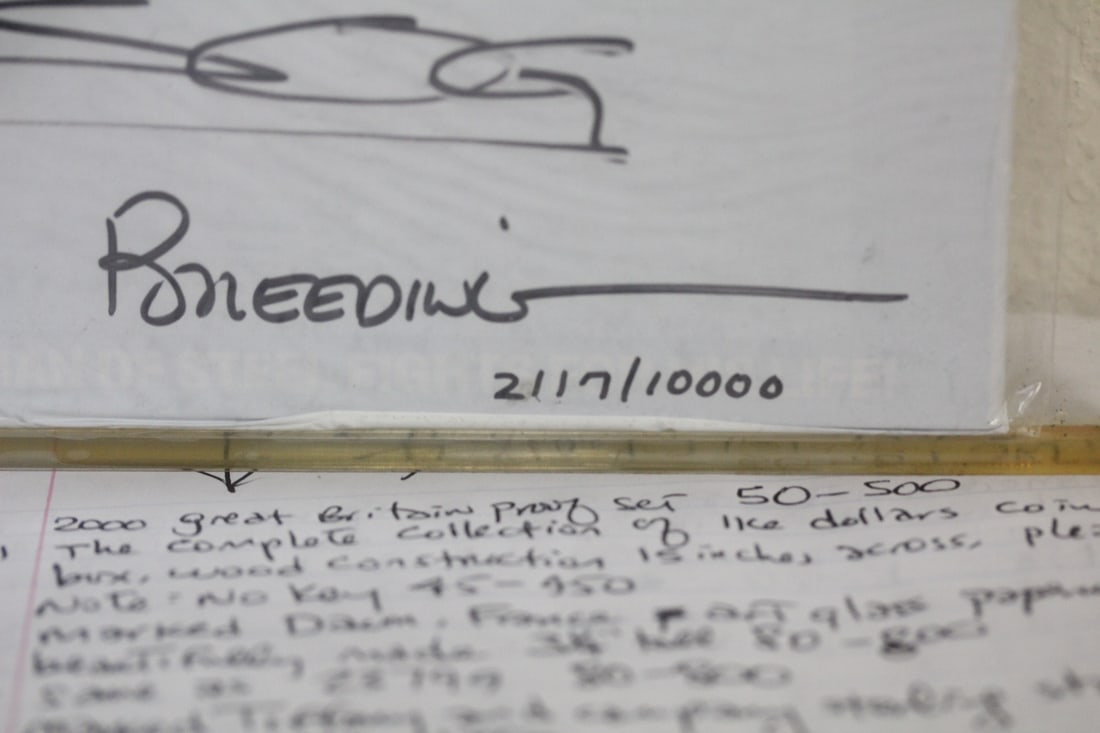 BREEDING
2117/10000
2000 great Britain proof set 50-500
The complete collection of like dollars coin
box, wood construction 15 inches across, ple
Note: No Key 45-450
Marked Daum. France art glass paperw
beautifully made 80-800
Same as 80-800
Marked Tiffany and company sterling